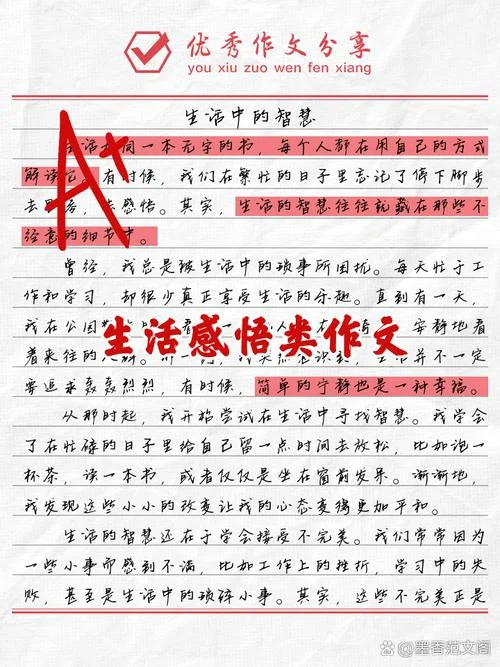 优秀作文分享
you xiu zuo wen fen xiang
A+
生活中的智慧
同一本无字的书，每个人都在用自己的方式
解读它。有时候，我们在繁忙的日子里忘记了停下脚步
去，去感悟。其实，生活的智慧往往就藏在那些不
经意的细节中。
曾经，我总是被生活中的琐事所困扰。每天忙于工
作和学习，却很少真正享受生活的乐趣。直到有一天，
我在公园 安静地看
生活感悟类作文
着来往的 并不一定
要追求轰轰烈烈，有时候，简单的宁静也是一种幸福。
从那时起，我开始尝试在生活中寻找智慧。我学会
了在忙碌的日子里给自己留一点时间去放松，比如泡一
杯茶，读一本书，或者仅仅是坐在窗前发呆。渐渐地，
我发现这些小小的改变让我的心态变得更加平和。
生活的智慧还在于学会接受不完美。我们常常因为
一些小事而感到不满，比如工作上的挫折，学习中的失
败，甚至是生活中的琐碎小事。其实，这些不完美正是
墨香范文阁